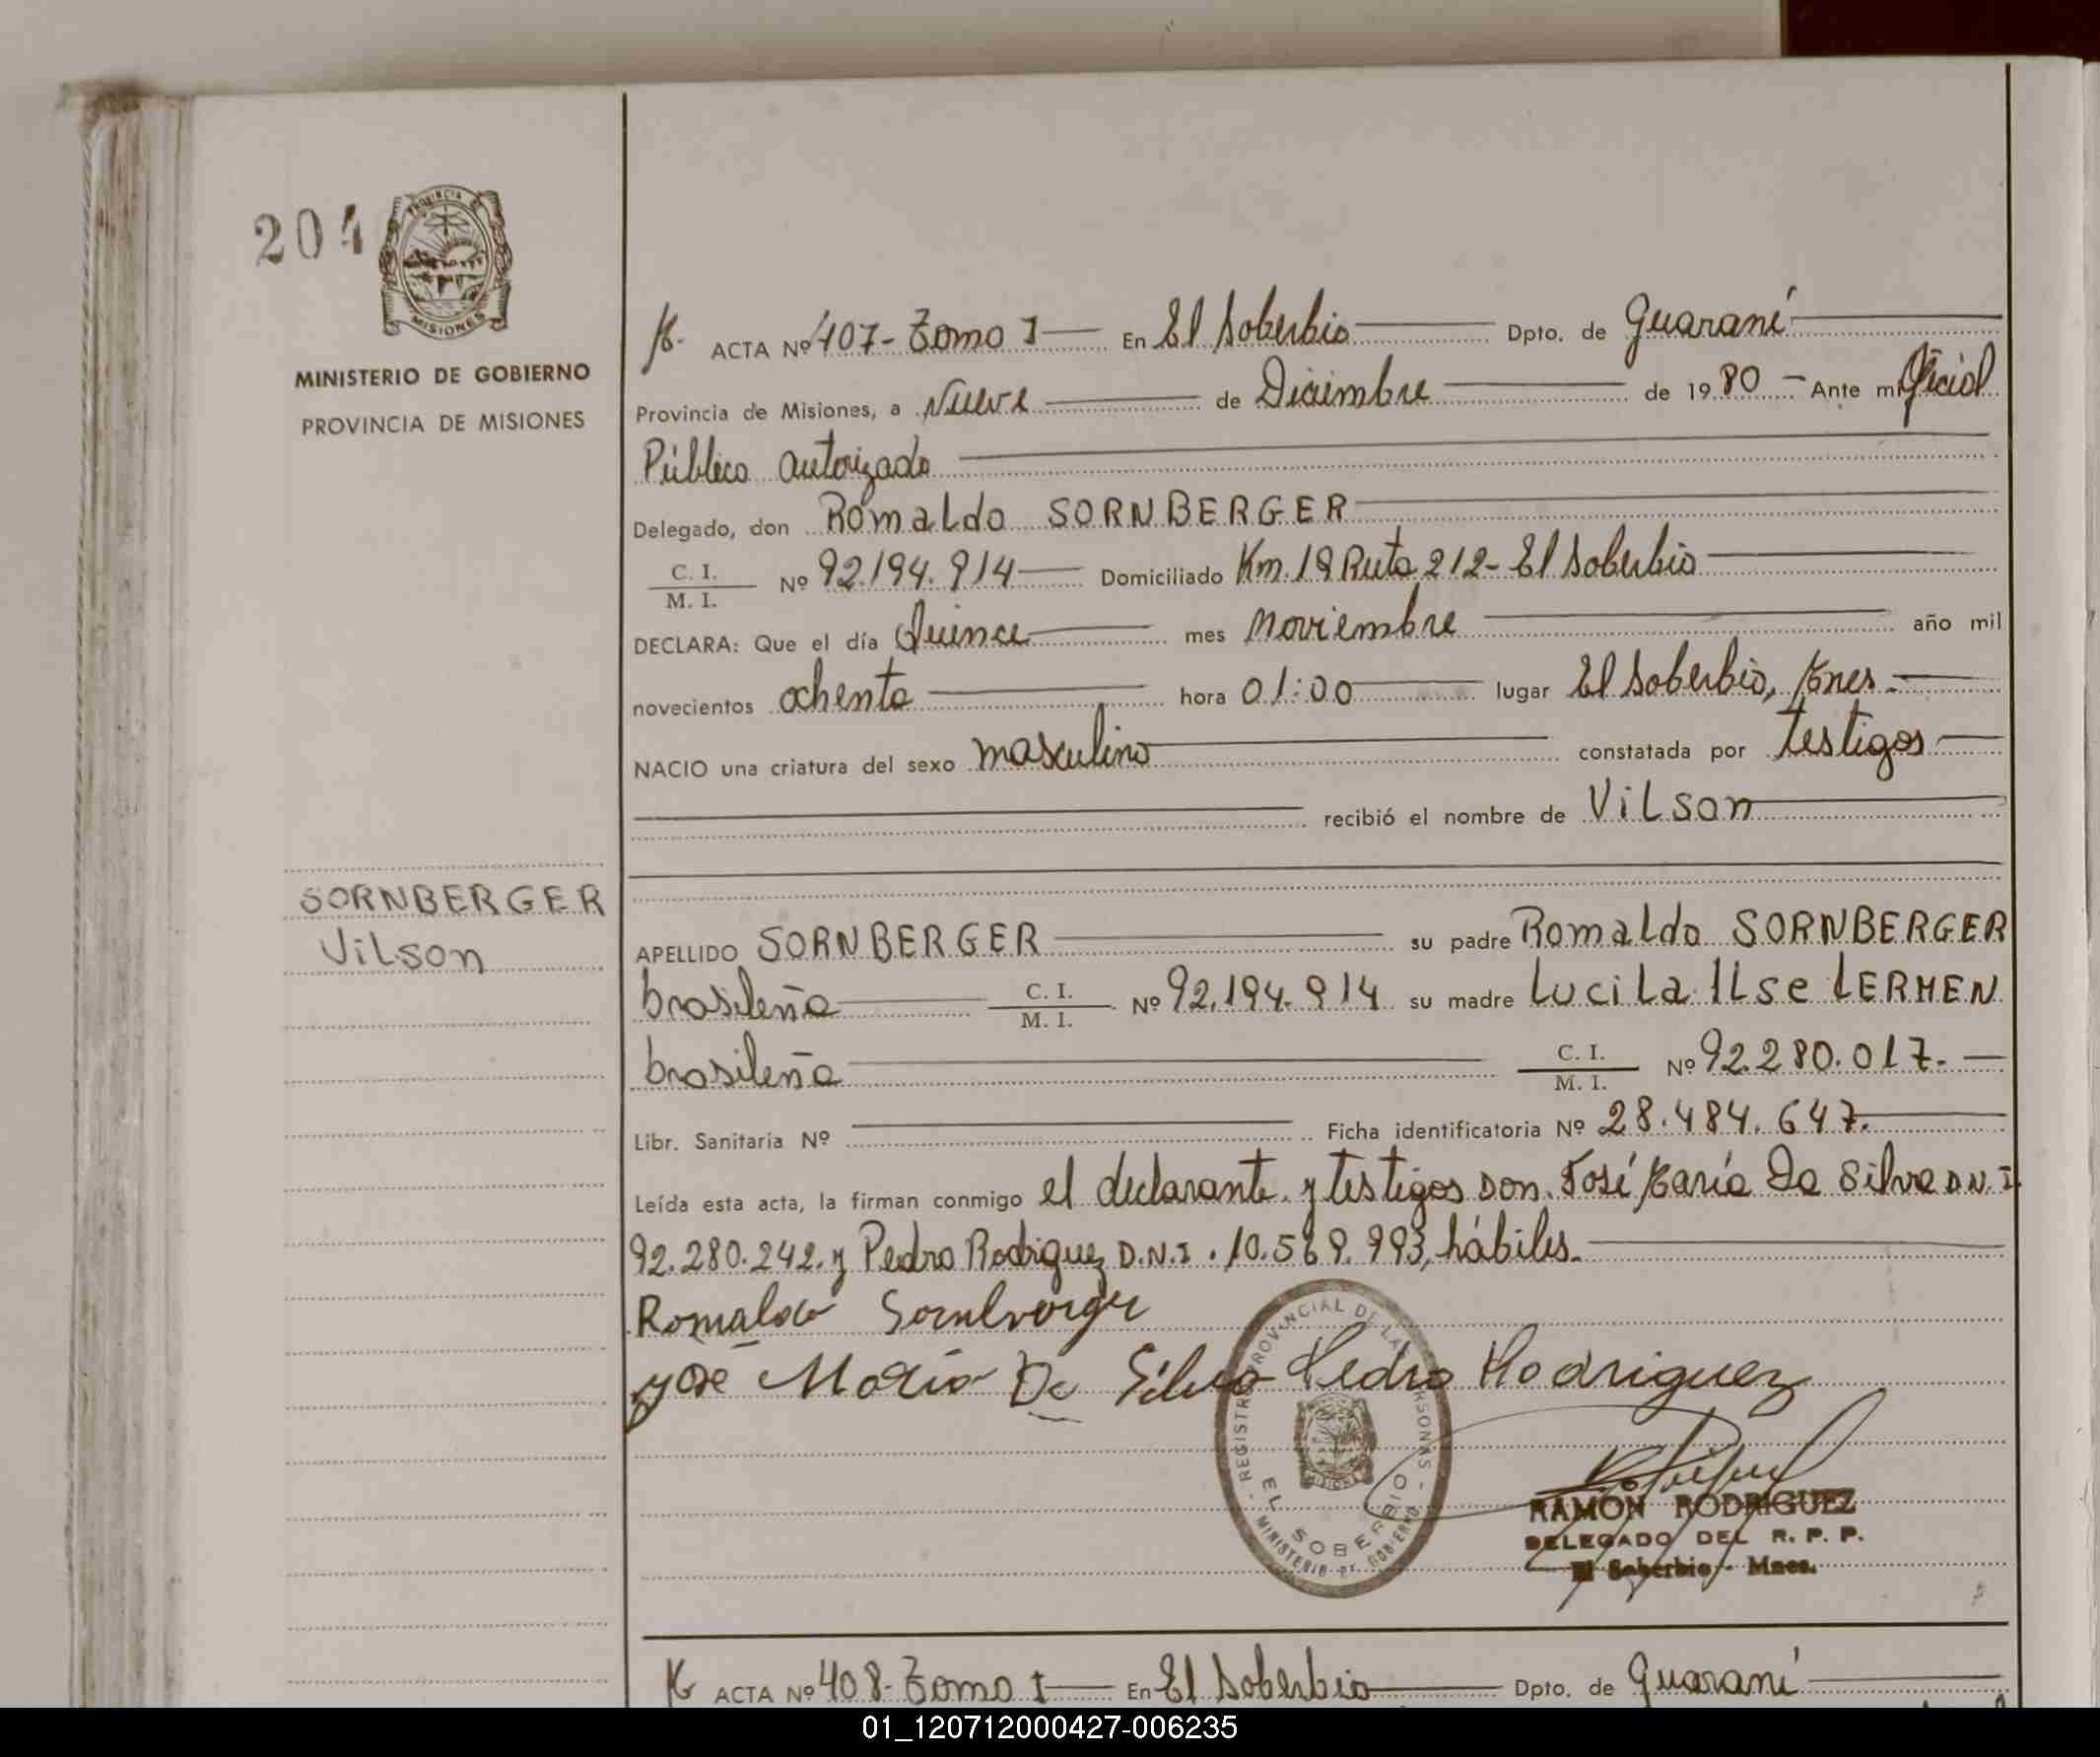 204
PROVINCIA
MISIONES
MINISTERIO DE GOBIERNO
PROVINCIA DE MISIONES
ACTA Nº 407- Tomo I En El Soberbio Dpto. de Guaraní
Provincia de Misiones, a Nueve de Diciembre de 1980 Ante mi Oficial
Público autorizado
Delegado, don Romaldo SORNBERGER
C. I.
M. I. Nº 92.194.914 Domiciliado Km. 18 Ruta 212- El Soberbio
DECLARA: Que el día Quince mes Noviembre año mil
novecientos ochenta hora 01:00 lugar El Soberbio, Mnes.
NACIO una criatura del sexo masculino constatada por testigos
recibió el nombre de Vilson
SORNBERGER
Vilson
APELLIDO SORNBERGER su padre Romaldo SORNBERGER
brasileña C. I. M. I. Nº 92.194.914 su madre Lucila Ilse LERMEN
brasileña C. I. M. I. Nº 92.280.017.
Libr. Sanitaria Nº Ficha identificatoria Nº 28.484.647.
Leída esta acta, la firman conmigo el declarante y testigos Don. José María Da Silva D.N.I.
92.280.242. y Pedro Rodriguez D.N.I. 10.569.993, hábiles.
Romaldo Sornberger
José Maria Da Silva Pedro Rodriguez
REGISTRO PROVINCIAL DE LAS PERSONAS
EL SOBERBIO
MINISTERIO DE GOBIERNO
RAMON RODRIGUEZ
DELEGADO DEL R. P. P.
El Soberbio - Mnes.
ACTA Nº 408- Tomo I En El Soberbio Dpto. de Guaraní
01_120712000427-006235